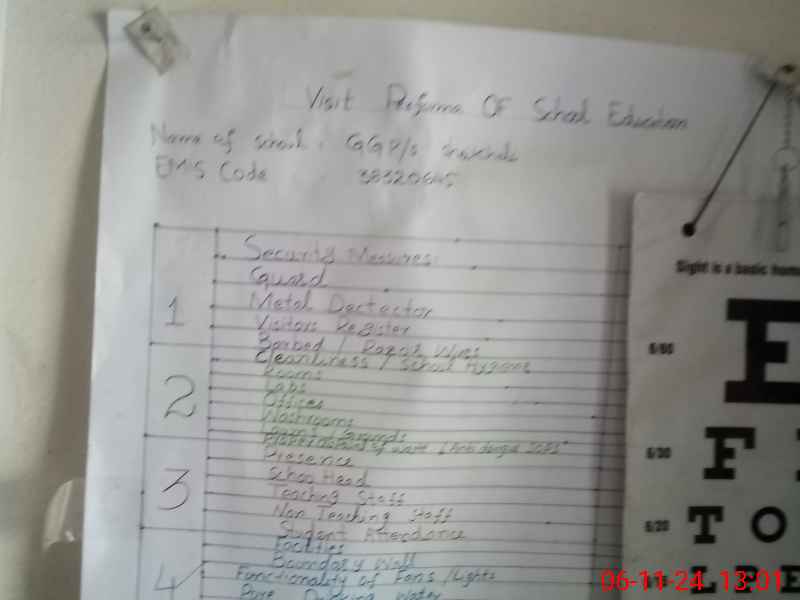 Visit Proforma OF School Education
Name of School : GGP/S
EMIS Code 38320645
Security Mesures:
Guard
1 Metal Dectector
Visitors Register
Barbed / Razor Wires
Cleanliness / School Hygiene
Rooms
Labs
2 Offices
Washrooms
Grounds
of water (Anti dengue SOPS)
Presence
School Head
3 Teaching Staff
Non Teaching Staff
Student Attendance
Facilities
Boundary Wall
4 Functionality of Fans /Lights
Pure Drinking Water
Sight is a basic
6/60 E
6/30 F
6/20 T O
L P E
06-11-24 13:01